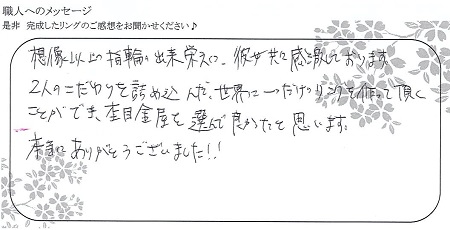 職人へのメッセージ
是非 完成したリングのご感想をお聞かせください♪
想像以上の指輪の出来栄えに、彼女共に感激しております
2人のこだわりを詰め込んだ、世界に一つだけのリングを作って頂く
ことができ、杢目金屋を選んで良かったと思います。
本当にありがとうございました!!